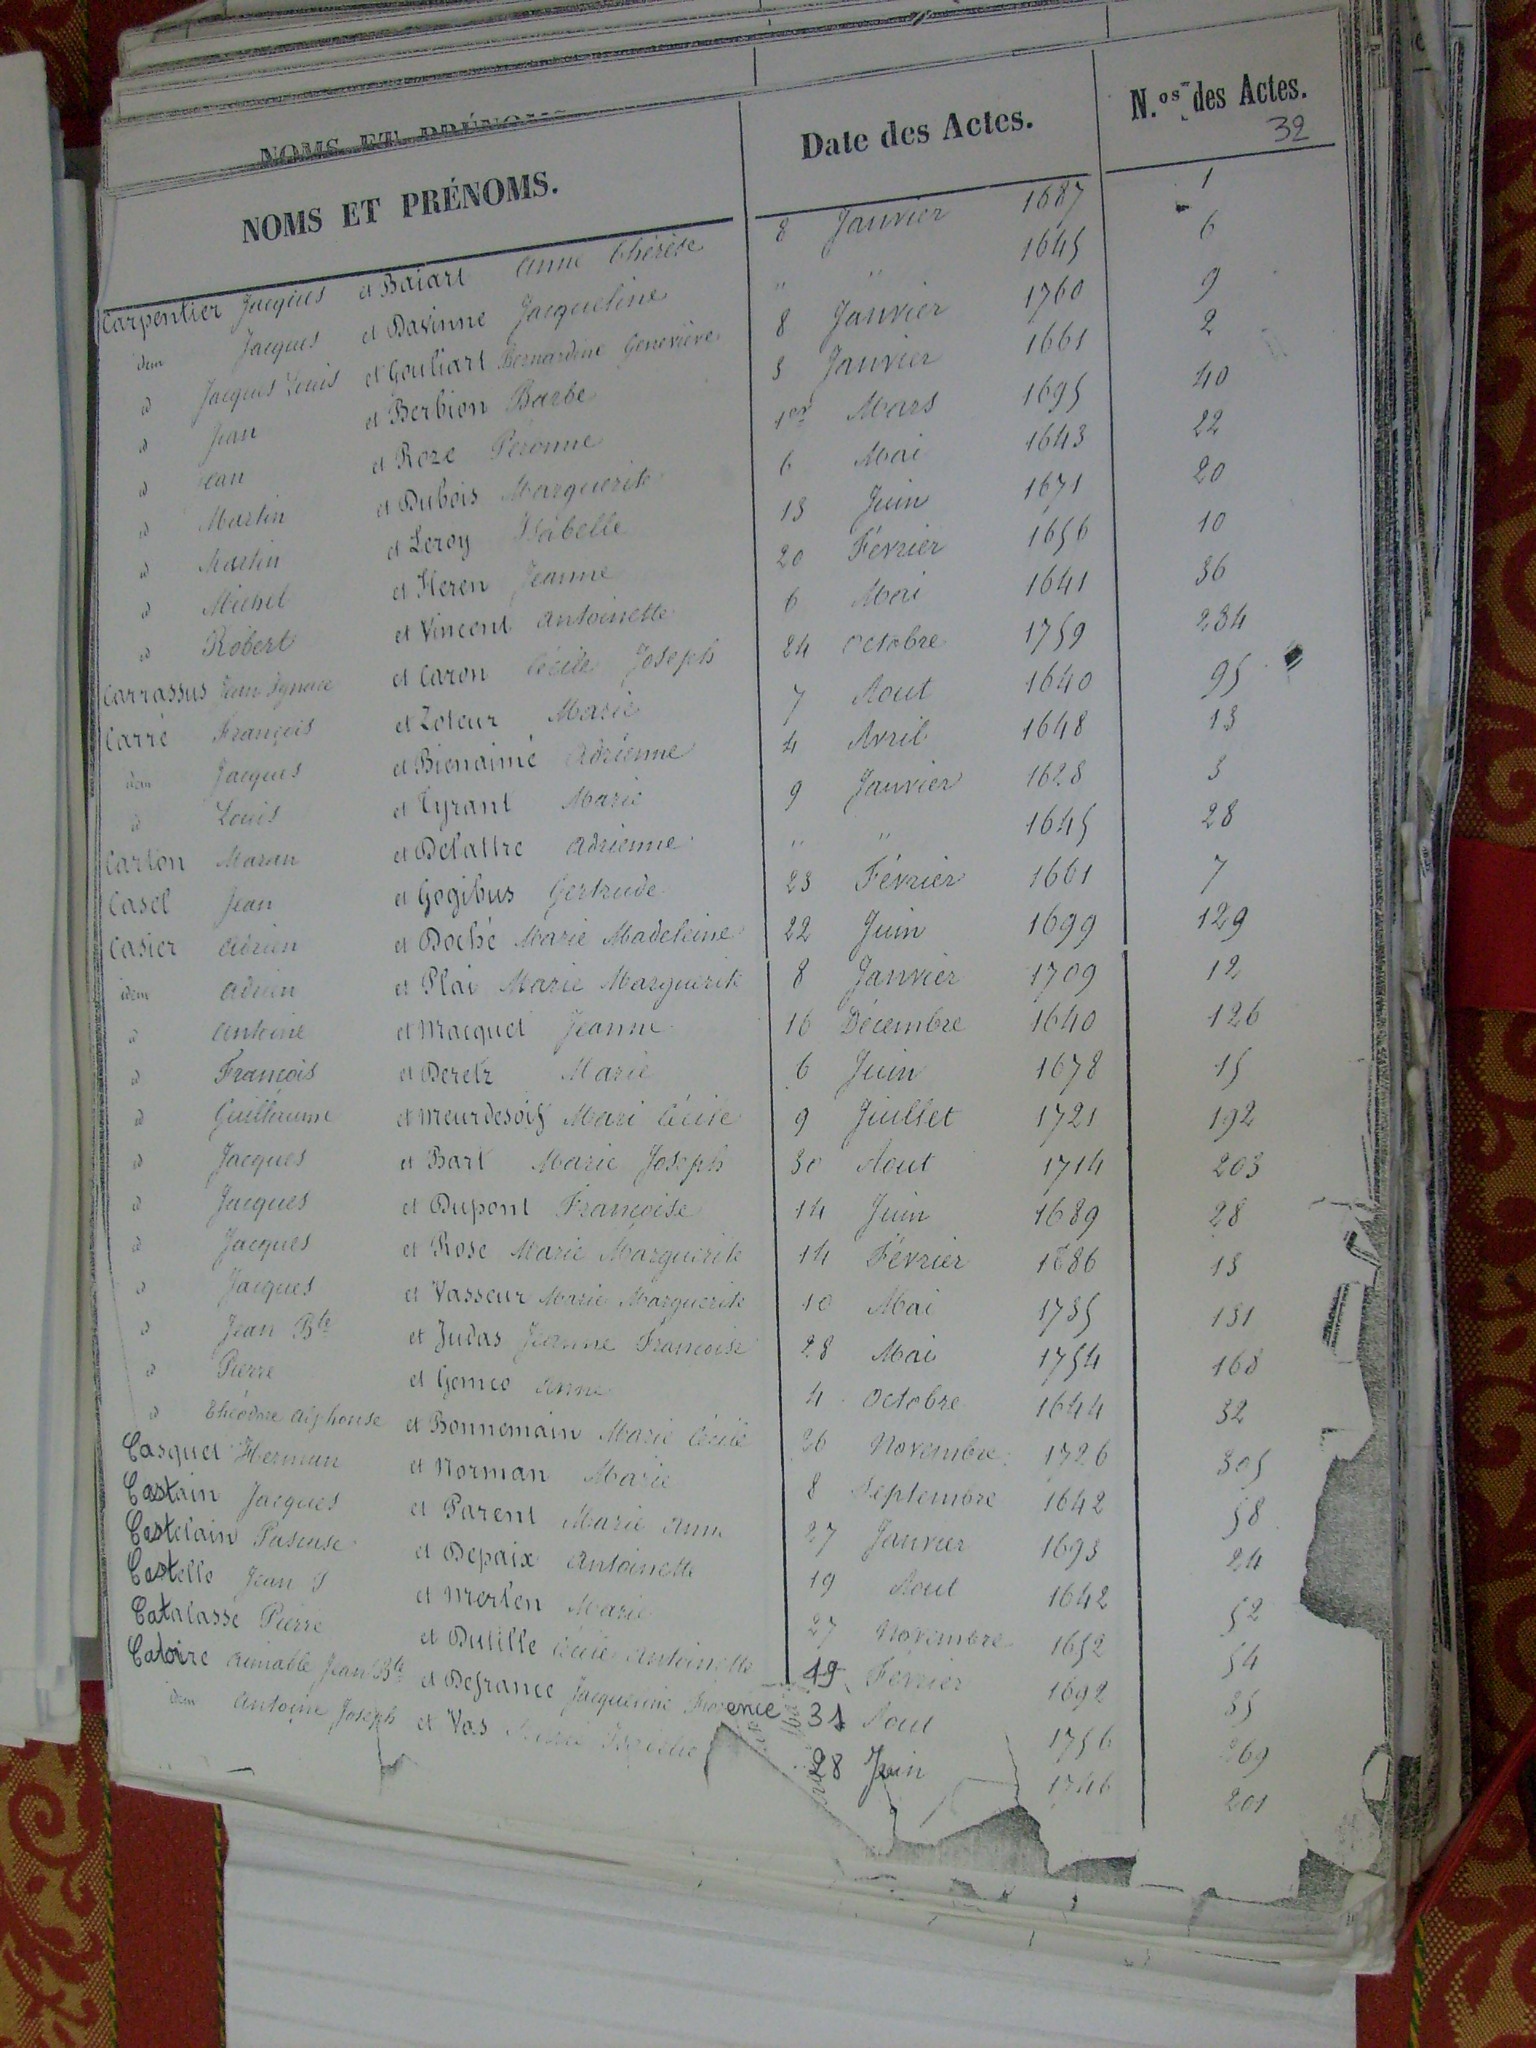 NOMS ET PRÉNOMS. Date des Actes. N.os des Actes.
32
Carpentier Jacques et Baiart Anne Thérèse 8 Janvier 1687 1
idem Jacques et Davinne Jacqueline " " 1645 6
id Jacques Louis et Gouliart Bernardine Geneviève 8 Janvier 1760 9
id Jean et Berbion Barbe 3 Janvier 1661 2
id Jean et Roze Péronne 1er Mars 1695 40
id Martin et Dubois Marguerite 6 Mai 1643 22
id Martin et Leroy Isabelle 13 Juin 1671 20
id Michel et Heren Jeanne 20 Février 1656 10
id Robert et Vincent Antoinette 6 Mai 1641 36
Carrassus Jean Ignace et Caron Cécile Joseph 24 Octobre 1759 234
Carré François et Zoteur Marie 7 Aout 1640 95
idem Jacques et Bienaimé Adrienne 4 Avril 1648 13
id Louis et Tyrant Marie 9 Janvier 1628 3
Carton Maran et Delattre Adrienne " " 1645 28
Casel Jean et Gogibus Gertrude 23 Février 1661 7
Casier Adrien et Doché Marie Madeleine 22 Juin 1699 129
idem Adrien et Plai Marie Marguerite 8 Janvier 1709 12
id Antoine et Macquet Jeanne 16 Décembre 1640 126
id François et Deretz Marie 6 Juin 1678 15
id Guillaume et Meurdesoif Marie Cécile 9 Juillet 1721 192
id Jacques et Bart Marie Joseph 30 Aout 1714 203
id Jacques et Dupont Françoise 14 Juin 1689 28
id Jacques et Rose Marie Marguerite 14 Février 1686 13
id Jacques et Vasseur Marie Marguerite 10 Mai 1735 131
id Jean Bte et Judas Jeanne Françoise 28 Mai 1754 168
id Pierre et Gomeo Anne 4 Octobre 1644 32
id Théodore Alphonse et Bonnemain Marie Cécile 26 Novembre 1726 305
Casquet Herman et Norman Marie 8 Septembre 1642 58
Castain Jacques et Parent Marie Anne 27 Janvier 1693 24
Castelain Pasquse et Depaix Antoinette 19 Aout 1642 52
Castelle Jean J et Merlen Marie 27 Novembre 1652 54
Catalasse Pierre et Dutille Cécile Antoinette 19 Février 1692 35
Catoire Aimable Jean Bte et Defrance Jacqueline Florence 31 Aout 1756 269
idem Antoine Joseph et Vas 28 Juin 1746 201